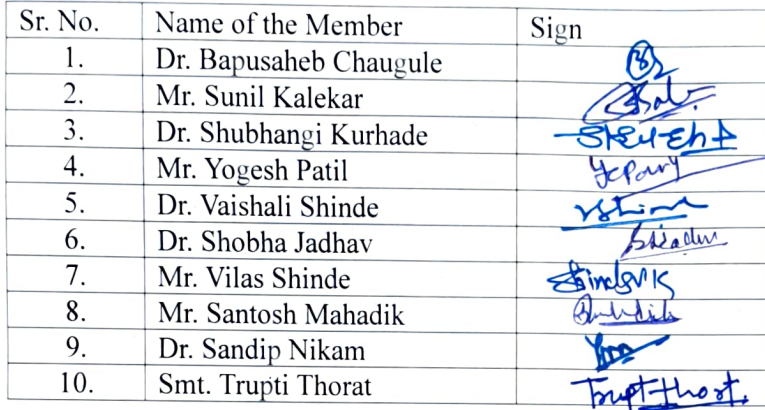 Sr. No. Name of the Member Sign
1. Dr. Bapusaheb Chaugule
2. Mr. Sunil Kalekar
3. Dr. Shubhangi Kurhade
4. Mr. Yogesh Patil
5. Dr. Vaishali Shinde VShinde
6. Dr. Shobha Jadhav
7. Mr. Vilas Shinde ShindeVK
8. Mr. Santosh Mahadik
9. Dr. Sandip Nikam
10. Smt. Trupti Thorat